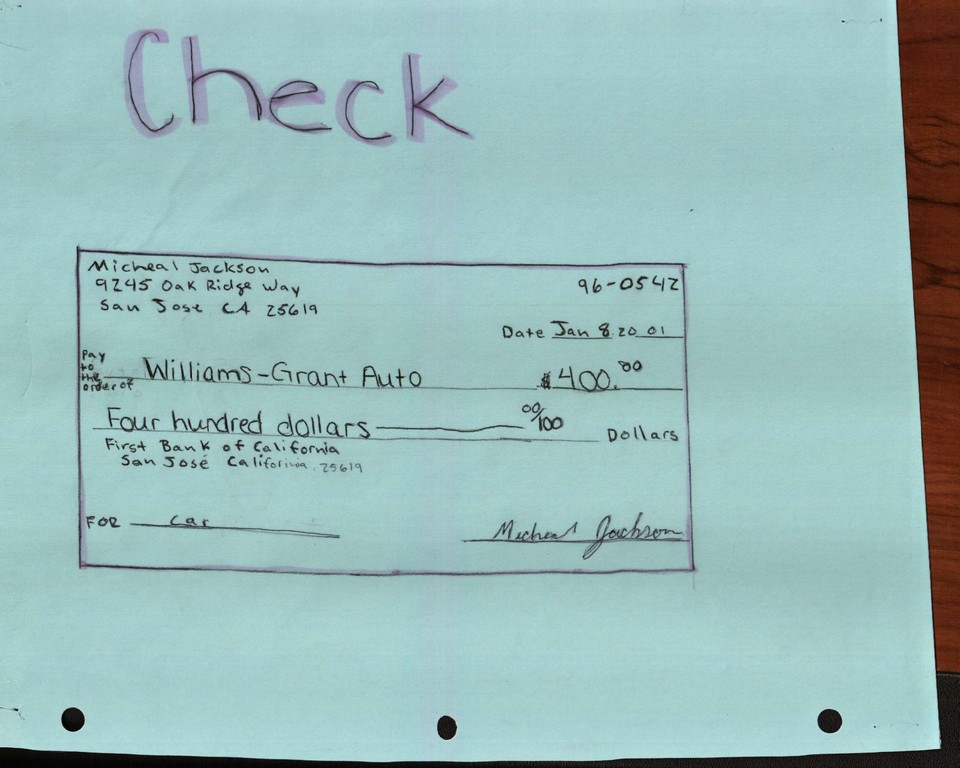 Check
Micheal Jackson
9245 Oak Ridge Way
San Jose CA 25619
96-0542
Date Jan 8 20 01
Pay to the order of Williams-Grant Auto $400.00
Four hundred dollars 00/100 Dollars
First Bank of California
San José California 25619
FOR car
Micheal Jackson